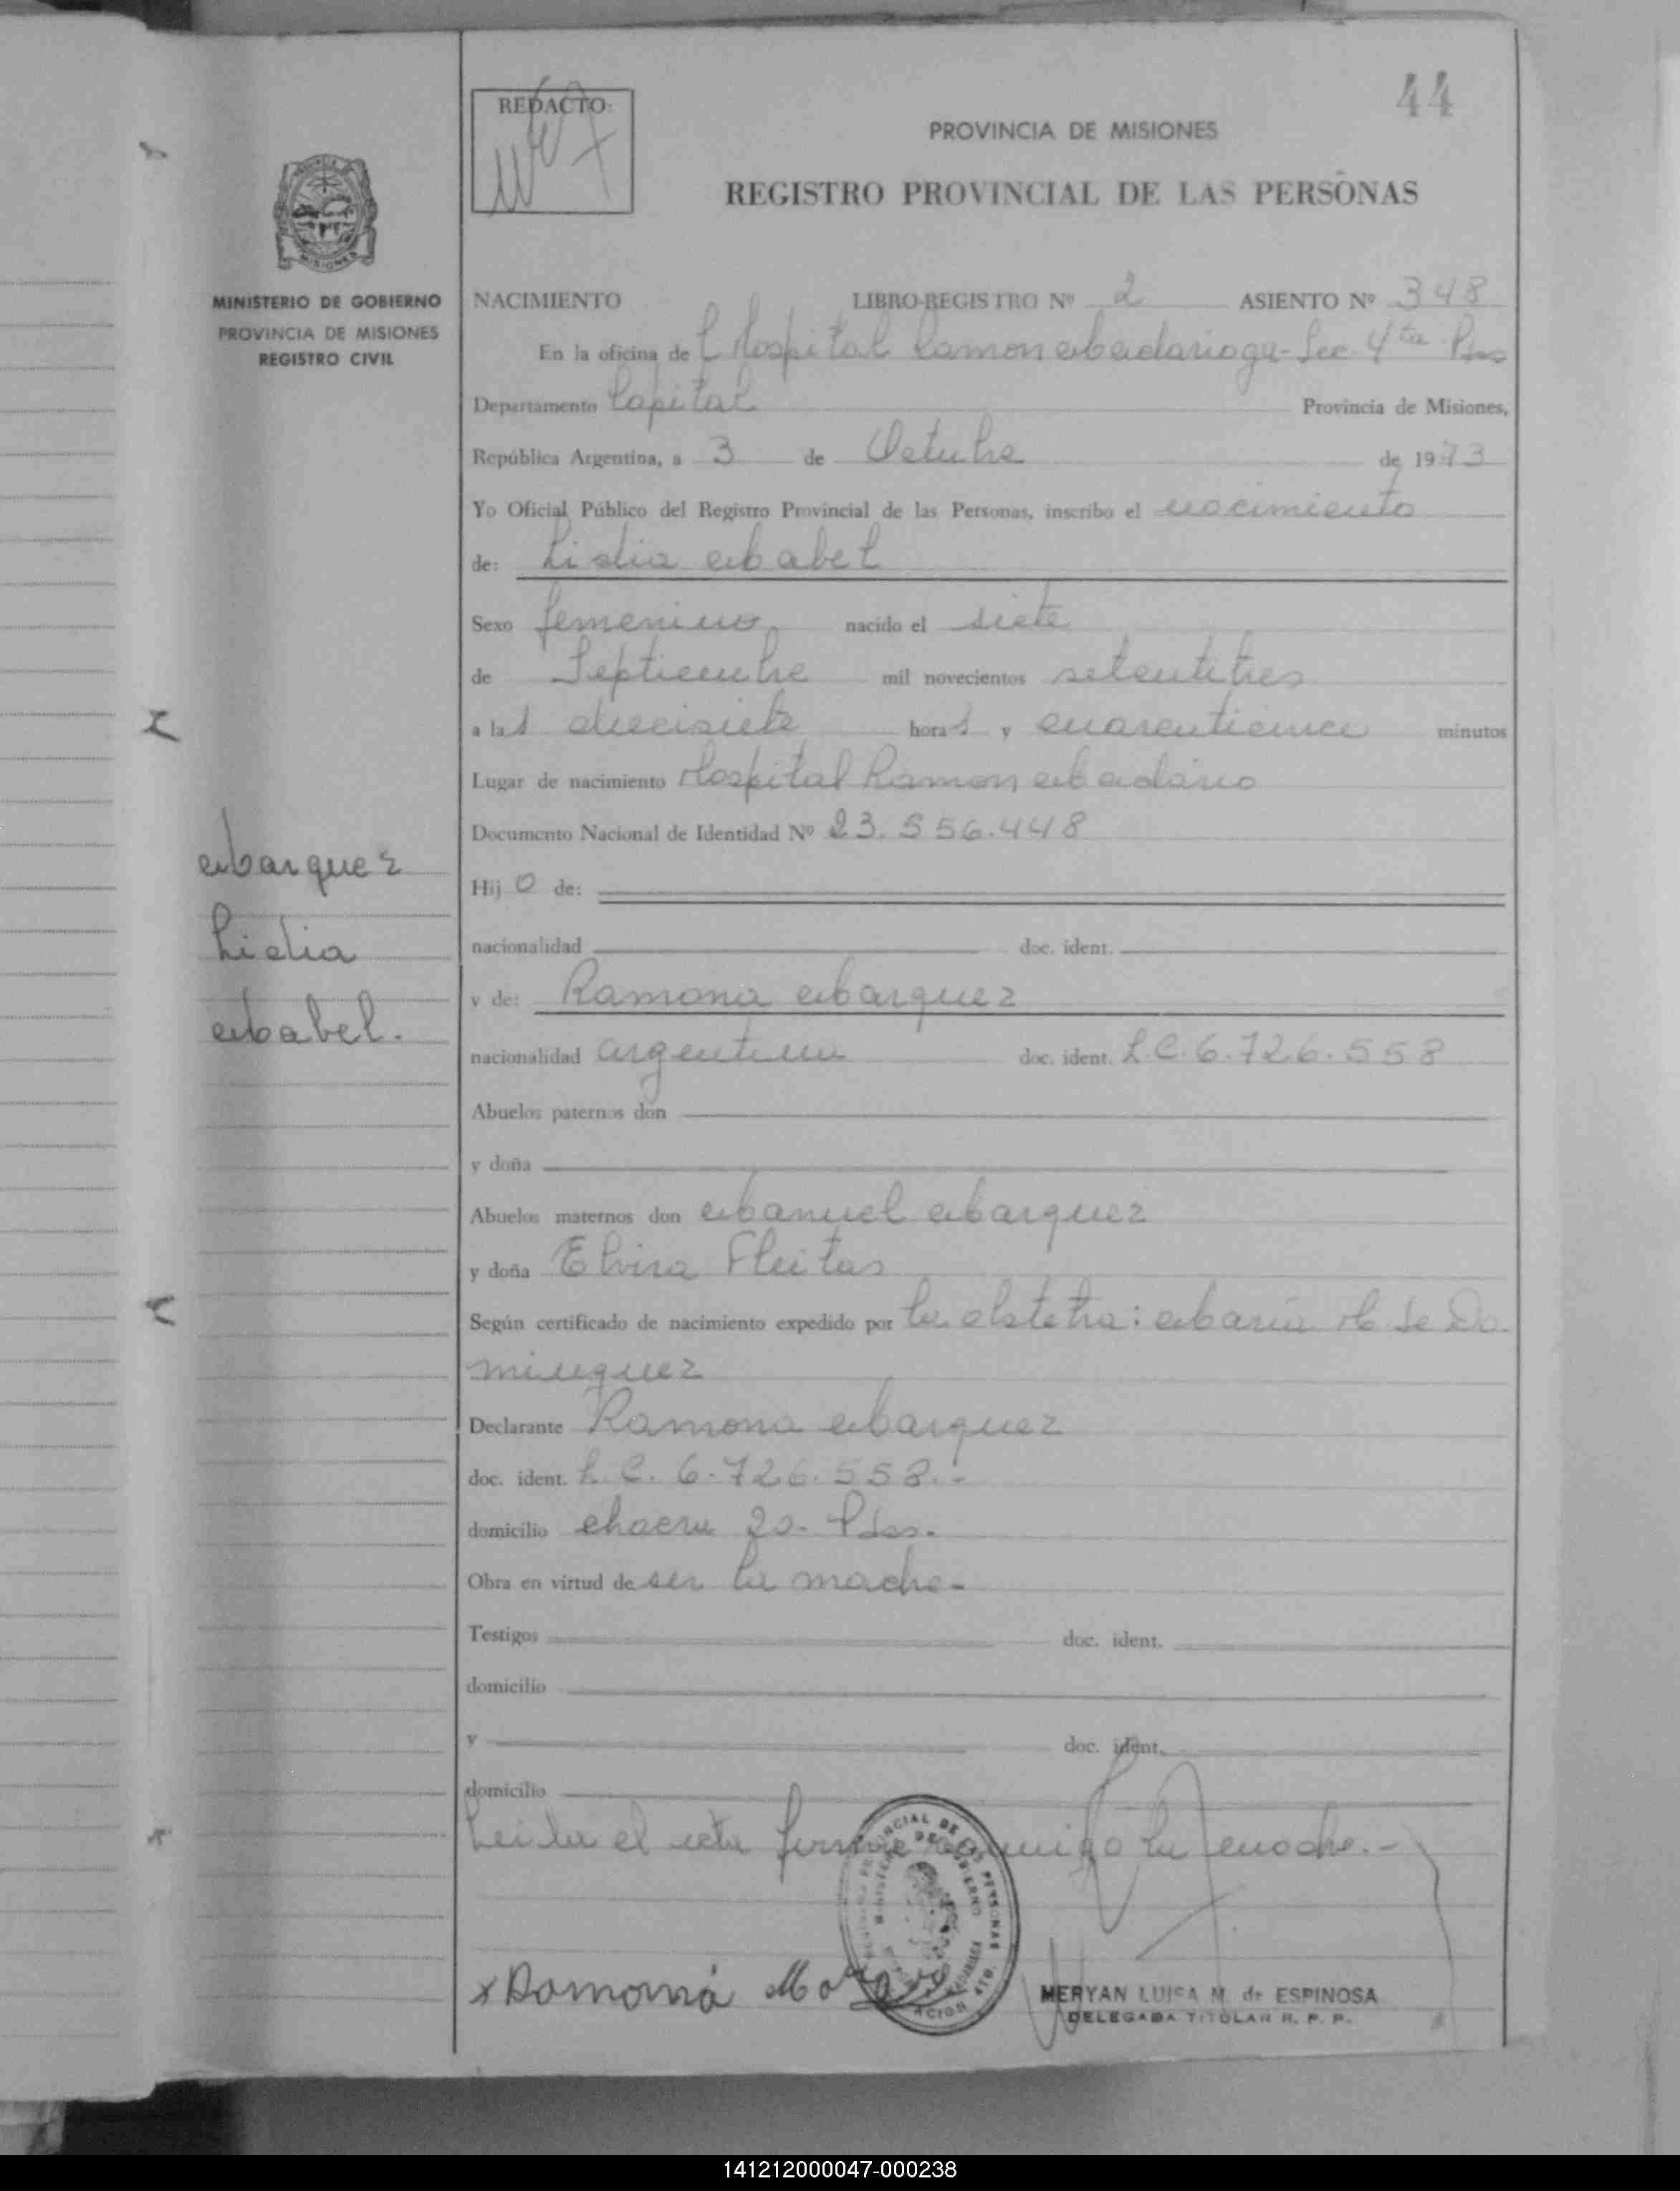 44
REDACTO:
PROVINCIA DE MISIONES
REGISTRO PROVINCIAL DE LAS PERSONAS
MISIONES
MINISTERIO DE GOBIERNO
PROVINCIA DE MISIONES
REGISTRO CIVIL
NACIMIENTO LIBRO-REGISTRO Nº 2 ASIENTO Nº 348
En la oficina de l Hospital Ramon Madariaga - Sec. 4ta Pdas
Departamento Capital Provincia de Misiones,
República Argentina, a 3 de Octubre de 1973
Yo Oficial Público del Registro Provincial de las Personas, inscribo el nacimiento
de: Lidia Mabel
Sexo femenino nacido el siete
de Septiembre mil novecientos setentitres
a las diecisiete horas y cuarenticinco minutos
Lugar de nacimiento Hospital Ramon Madario
Documento Nacional de Identidad Nº 23.556.448
Marquez
Lidia
Mabel.
Hij o de:
nacionalidad doc. ident.
y de: Ramona Marquez
nacionalidad argentina doc. ident. L.C. 6.726.558
Abuelos paternos don
y doña
Abuelos maternos don Manuel Marquez
y doña Elvira Fleitas
Según certificado de nacimiento expedido por la obstetra: Maria H. de Do
minguez
Declarante Ramona Marquez
doc. ident. L.C. 6.726.558.-
domicilio chacra 20- Pdas.
Obra en virtud de ser la madre-
Testigos doc. ident.
domicilio
y doc. ident.
domicilio
Leida el acta firma conmigo la madre.-
x Ramona
MERYAN LUISA M. de ESPINOSA
DELEGADA TITULAR R. P. P.
141212000047-000238